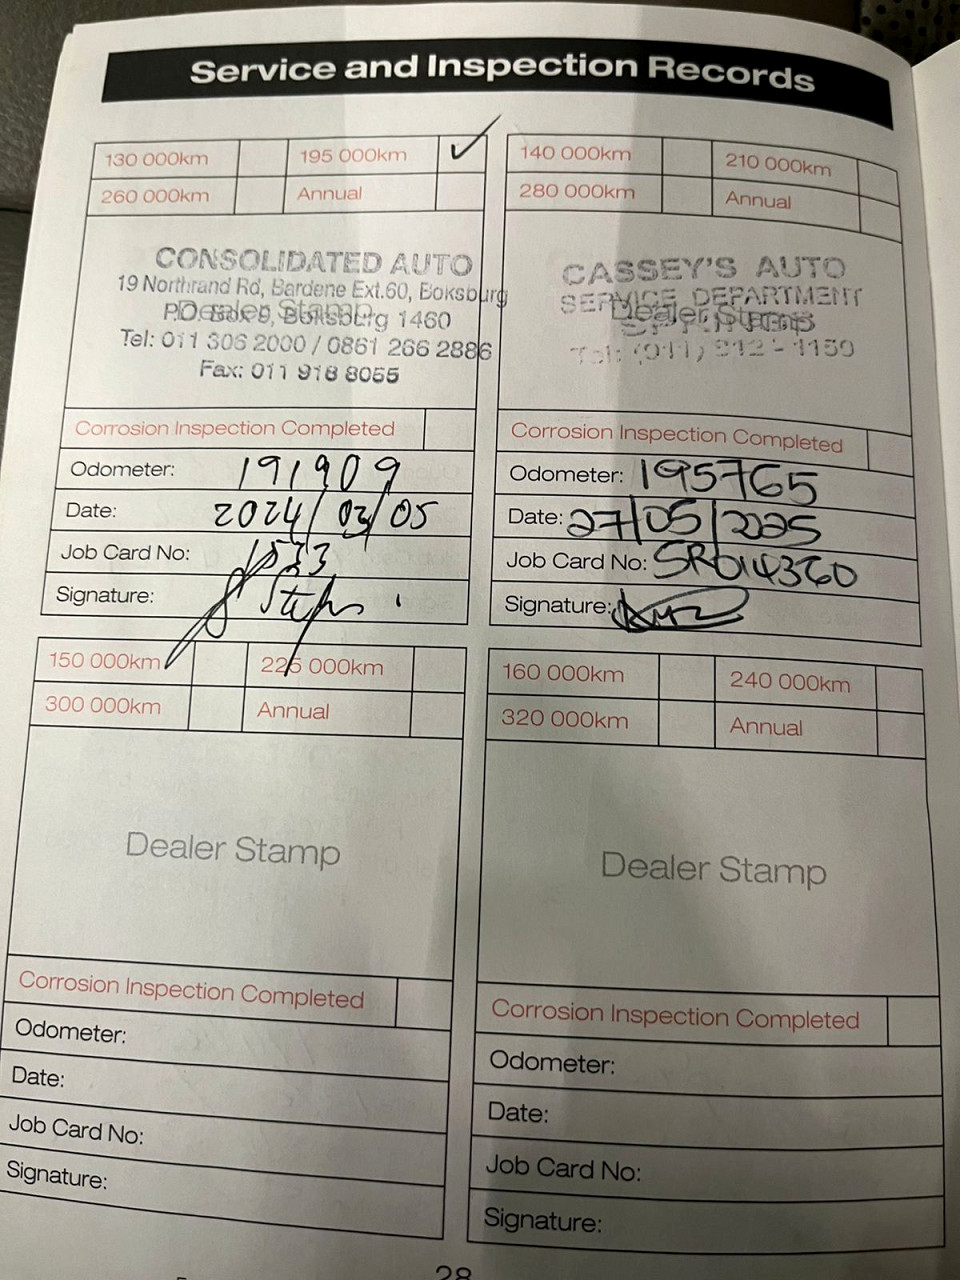 Service and Inspection Records
130 000km 195 000km ✓
260 000km Annual
CONSOLIDATED AUTO
19 Northrand Rd, Bardene Ext.60, Boksburg
Dealer Stamp
P.O. Box 9, Boksburg 1460
Tel: 011 306 2000 / 0861 266 2886
Fax: 011 918 8055
Corrosion Inspection Completed
Odometer: 191909
Date: 2024/02/05
Job Card No: 1533
Signature:
140 000km 210 000km
280 000km Annual
CASSEY'S AUTO
SERVICE DEPARTMENT
Dealer Stamp
SPRINGS
Tel: (011) 812 - 1150
Corrosion Inspection Completed
Odometer: 195765
Date: 27/05/2025
Job Card No: SR014360
Signature:
150 000km 225 000km
300 000km Annual
Dealer Stamp
Corrosion Inspection Completed
Odometer:
Date:
Job Card No:
Signature:
160 000km 240 000km
320 000km Annual
Dealer Stamp
Corrosion Inspection Completed
Odometer:
Date:
Job Card No:
Signature:
28